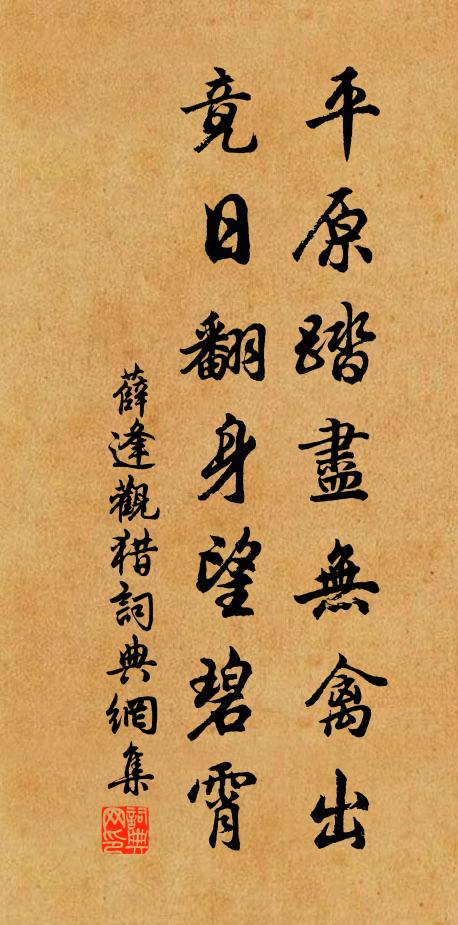 平原踏盡無禽出
竟日翻身望碧霄
薛逢觀猎詞典網集
詞典网印